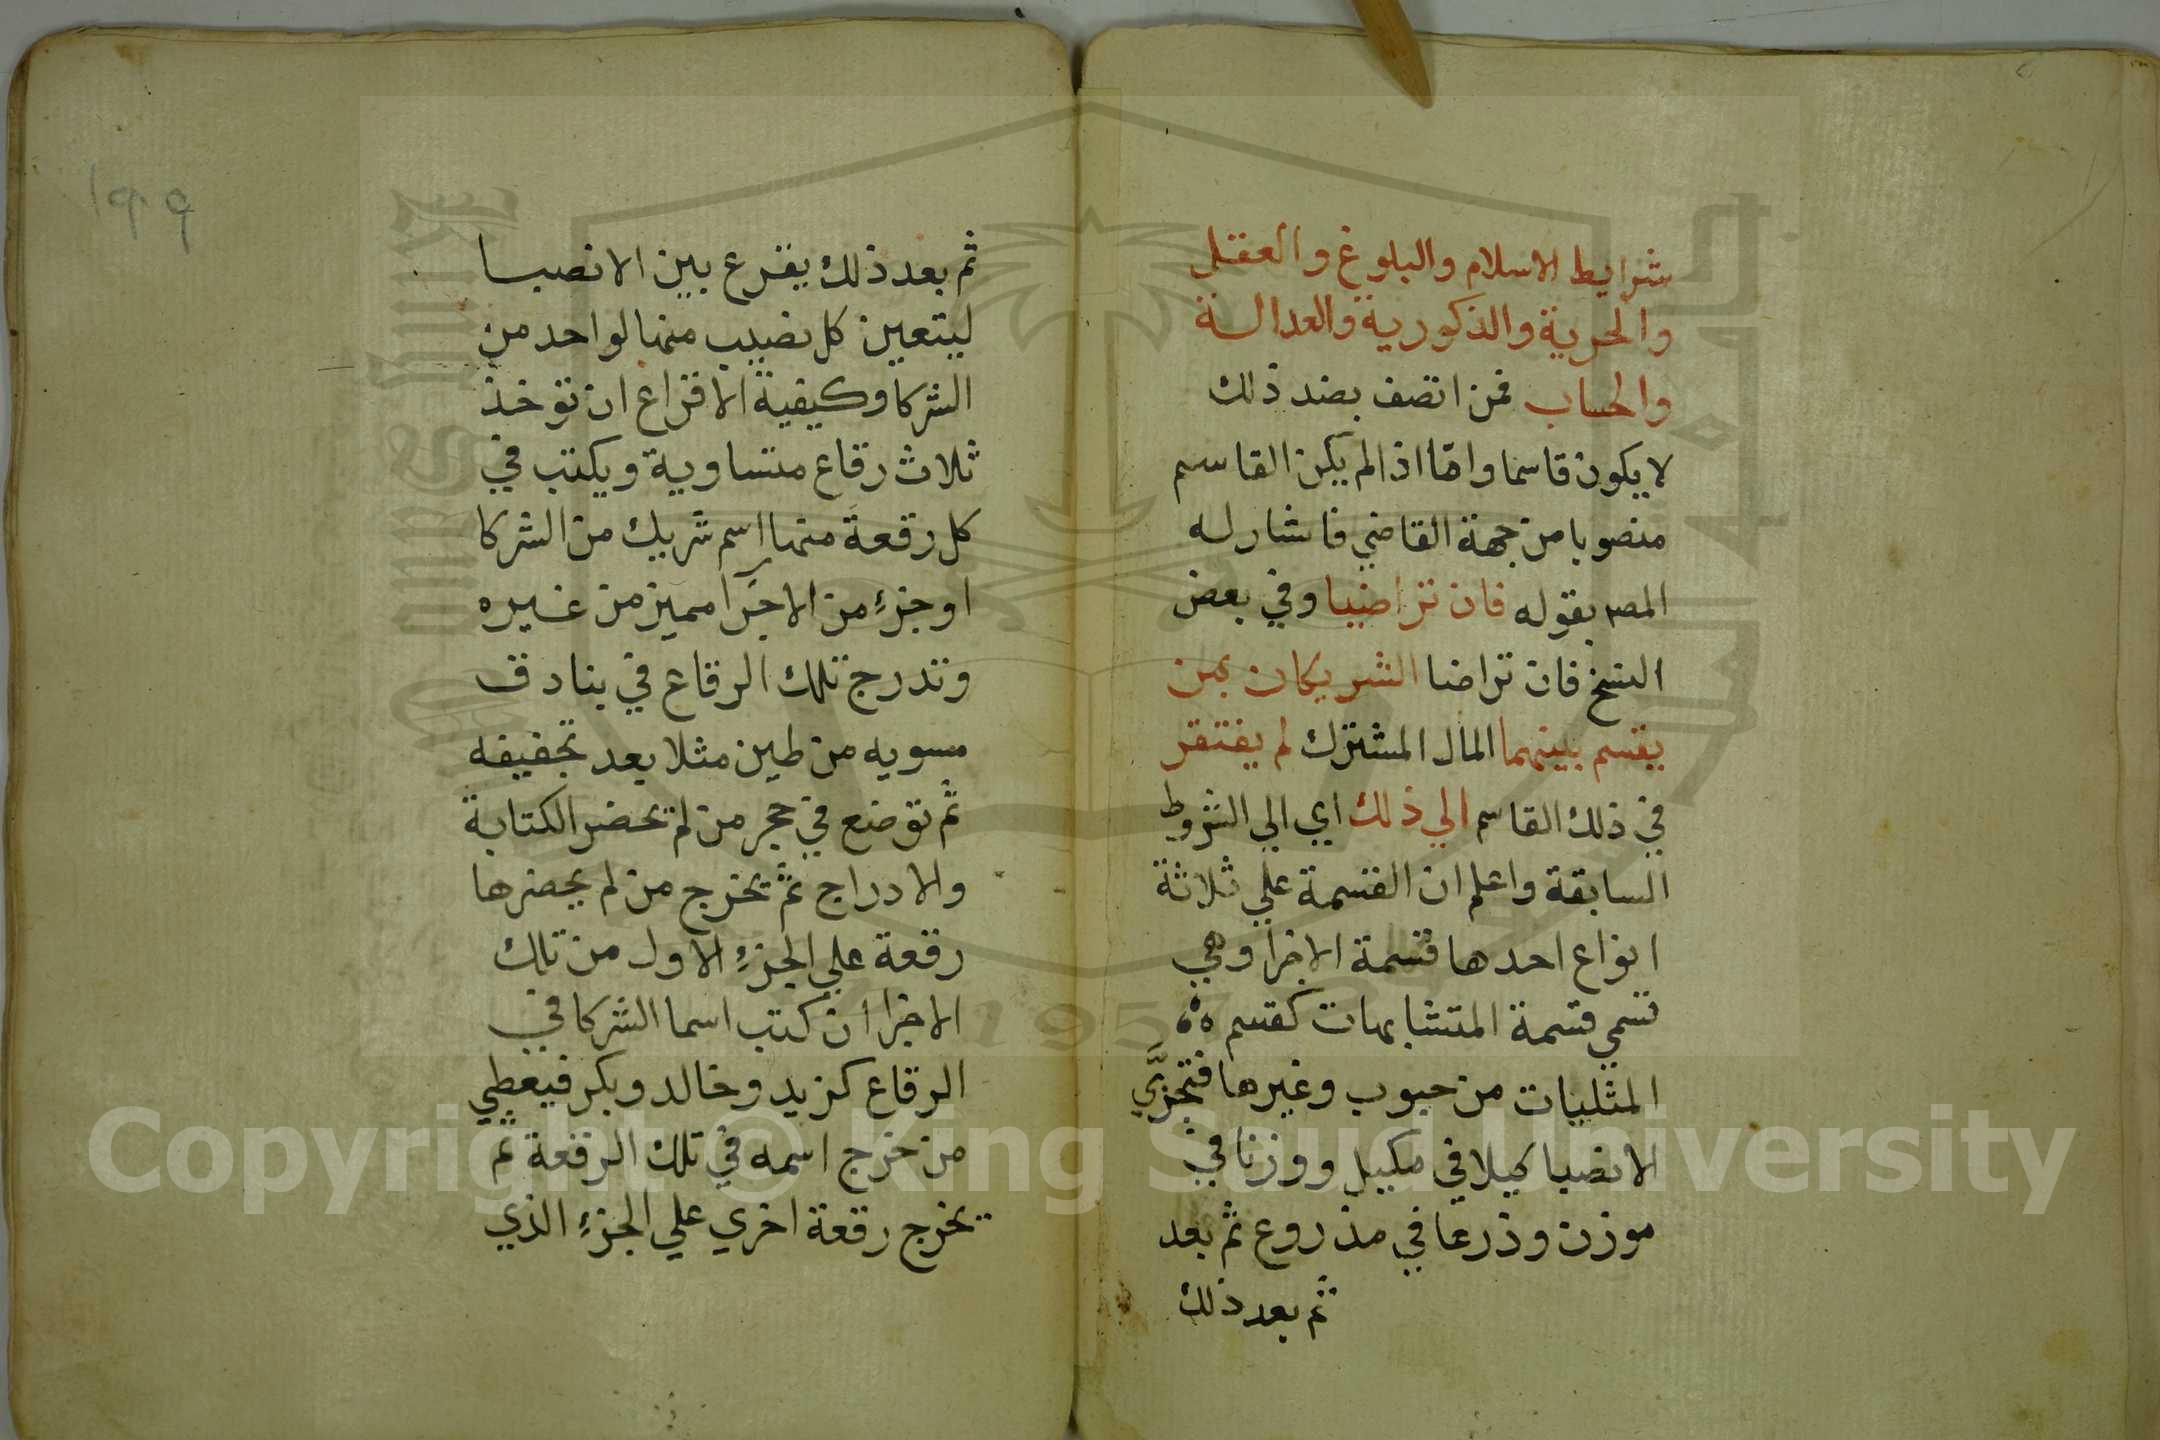 شرايط الاسلام والبلوغ والعقل
والحرية والذكورية والعدالة
والحساب فمن اتصف بضد ذلك
لا يكون قاسما واما اذا لم يكن القاسم
منصوبا من جهة القاضي فاشار له
المص بقوله فان تراضيا وفي بعض
النسخ فان تراضا الشريكان بمن
يقسم بينهما المال المشترك لم يفتقر
في ذلك القاسم الي ذلك اي الي الشروط
السابقة واعلم ان القسمة علي ثلاثة
انواع احدها قسمة الاجزا وهي
تسمي قسمة المتشابهات كقسم ه
المثليات من حبوب وغيرها فتجزَّي
الانصبا كيلا في مكيل ووزنا في
موزن وذرعا في مذروع ثم بعد
ثم بعد ذلك
١٩٩
ثم بعد ذلك يقرع بين الانصبا
ليتعين كل نصيب منها لواحد من
الشركا وكيفية الاقراع ان توخذ
ثلاث رقاع متساوية ويكتب في
كل رقعة منها اسم شريك من الشركا
او جزءٍ من الاجزا مميز من غيره
وتدرج تلك الرقاع في بنادق
مسويه من طين مثلا بعد تجفيفه
ثم توضع في حجر من لم يحضر الكتابة
والادراج ثم يخرج من لم يحضرها
رقعة علي الجزءِ الاول من تلك
الاجزا ان كتب اسما الشركا في
الرقاع كزيد وخالد وبكر فيعطي
من خرج اسمه في تلك الرقعة ثم
يخرج رقعة اخري علي الجزءِ الذي
1957
Copyright © King Saud University